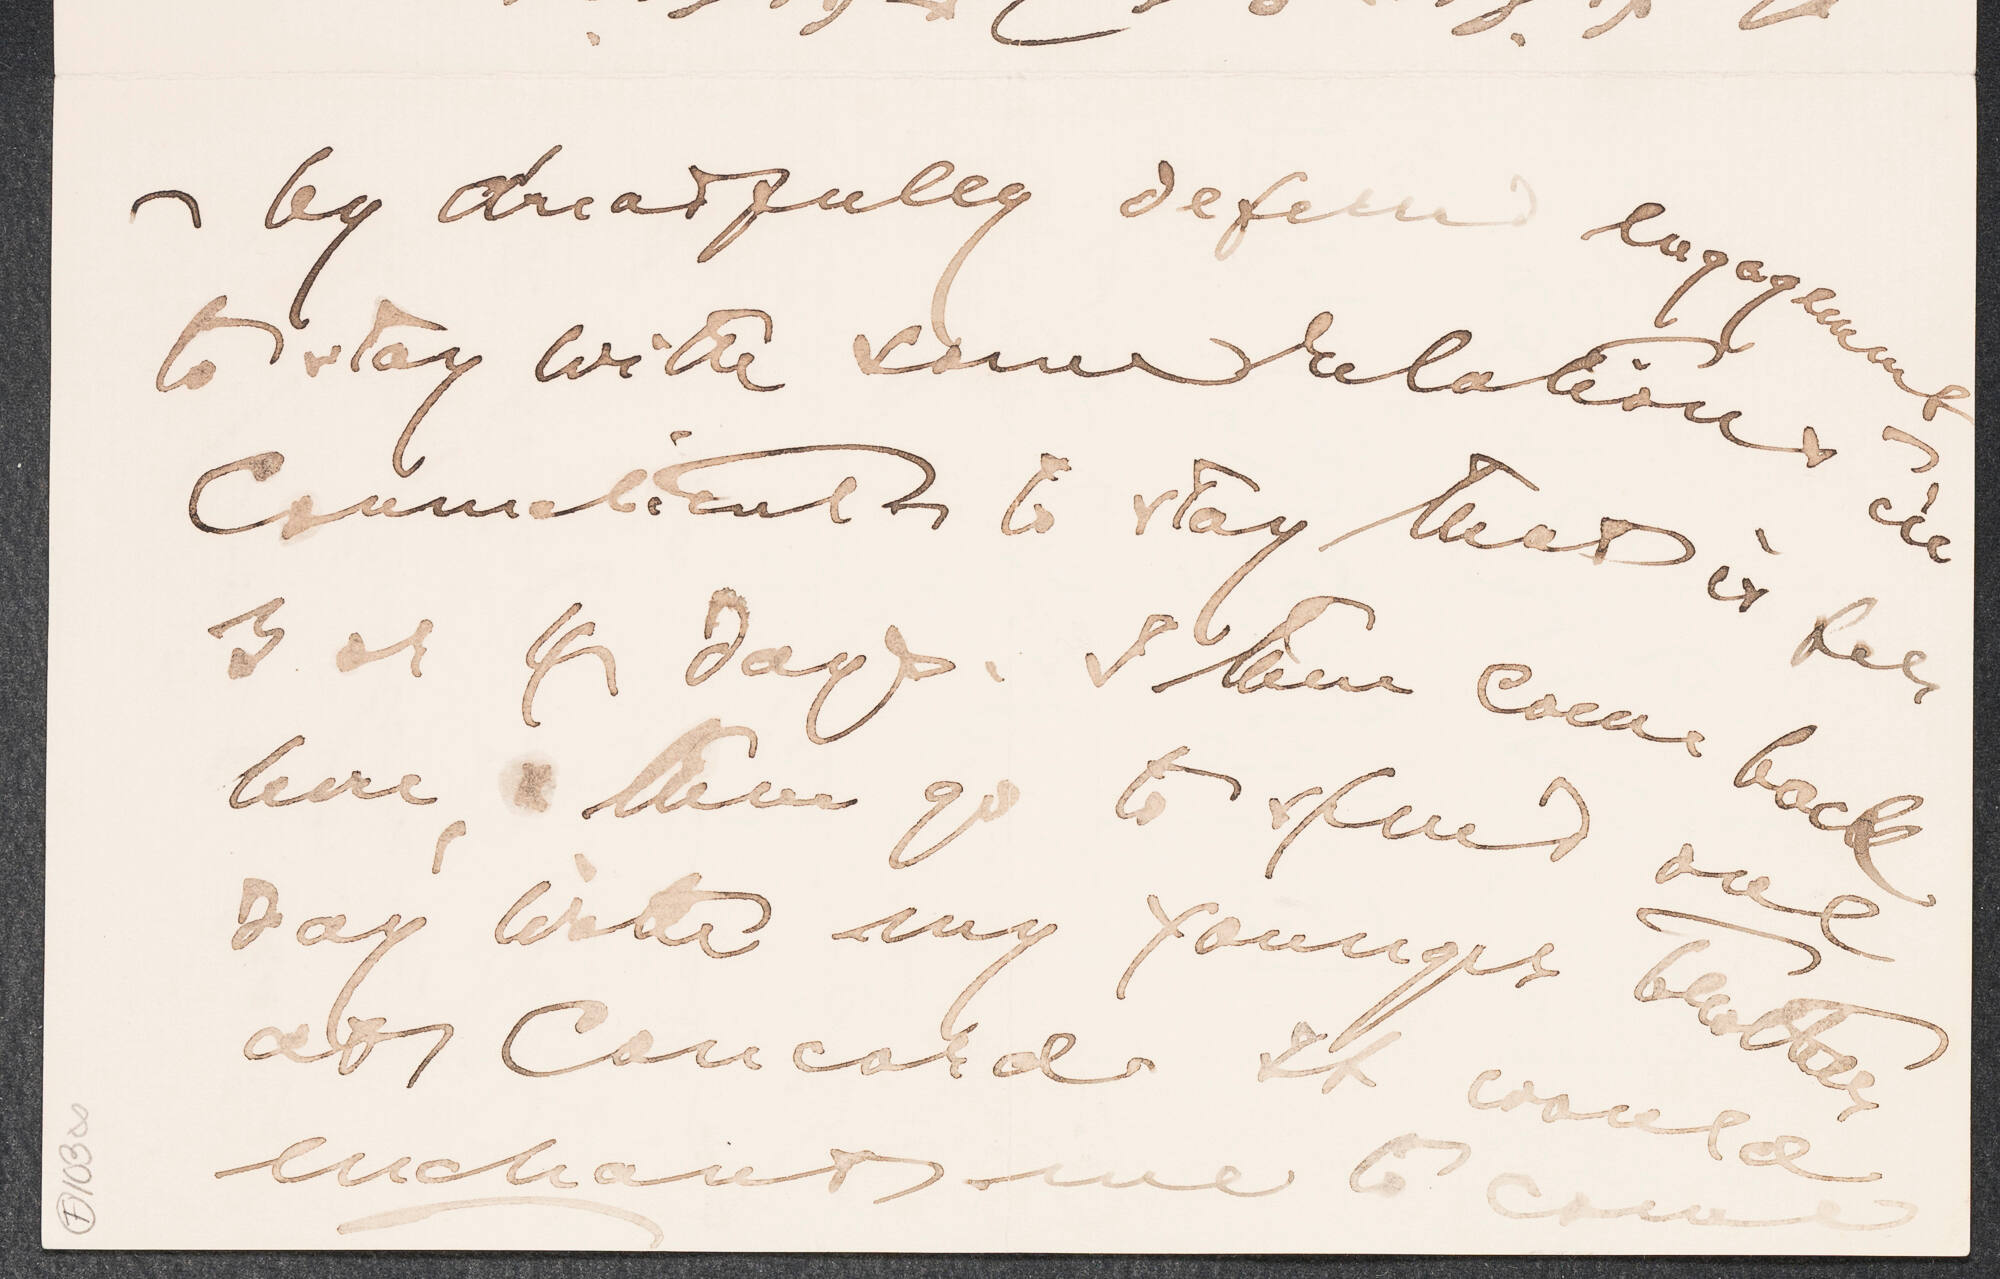 by dreadfully deferred engagement
to stay with some relations in
Connecticut - to stay that is but
3 or 4 days. I then come back
here, then go to spend one
day with my younger brother
at Concord. It would
enchant me to come
F/103